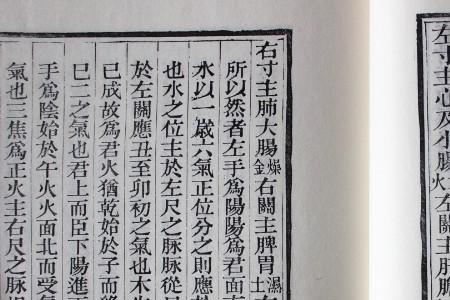 左寸主心及小腸火左關主
右寸主肺大腸燥金右關主脾胃濕土
所以然者左手爲陽陽爲君面
水以一歲六氣正位分之則應
也水之位主於左尺之脉脉從
於左關應丑至卯初之氣也木
已成故爲君火猶乾始於子而
巳二之氣也君上而臣下陽進
手爲陰始於午火火面北而受
氣也三焦爲正火主右尺之脉